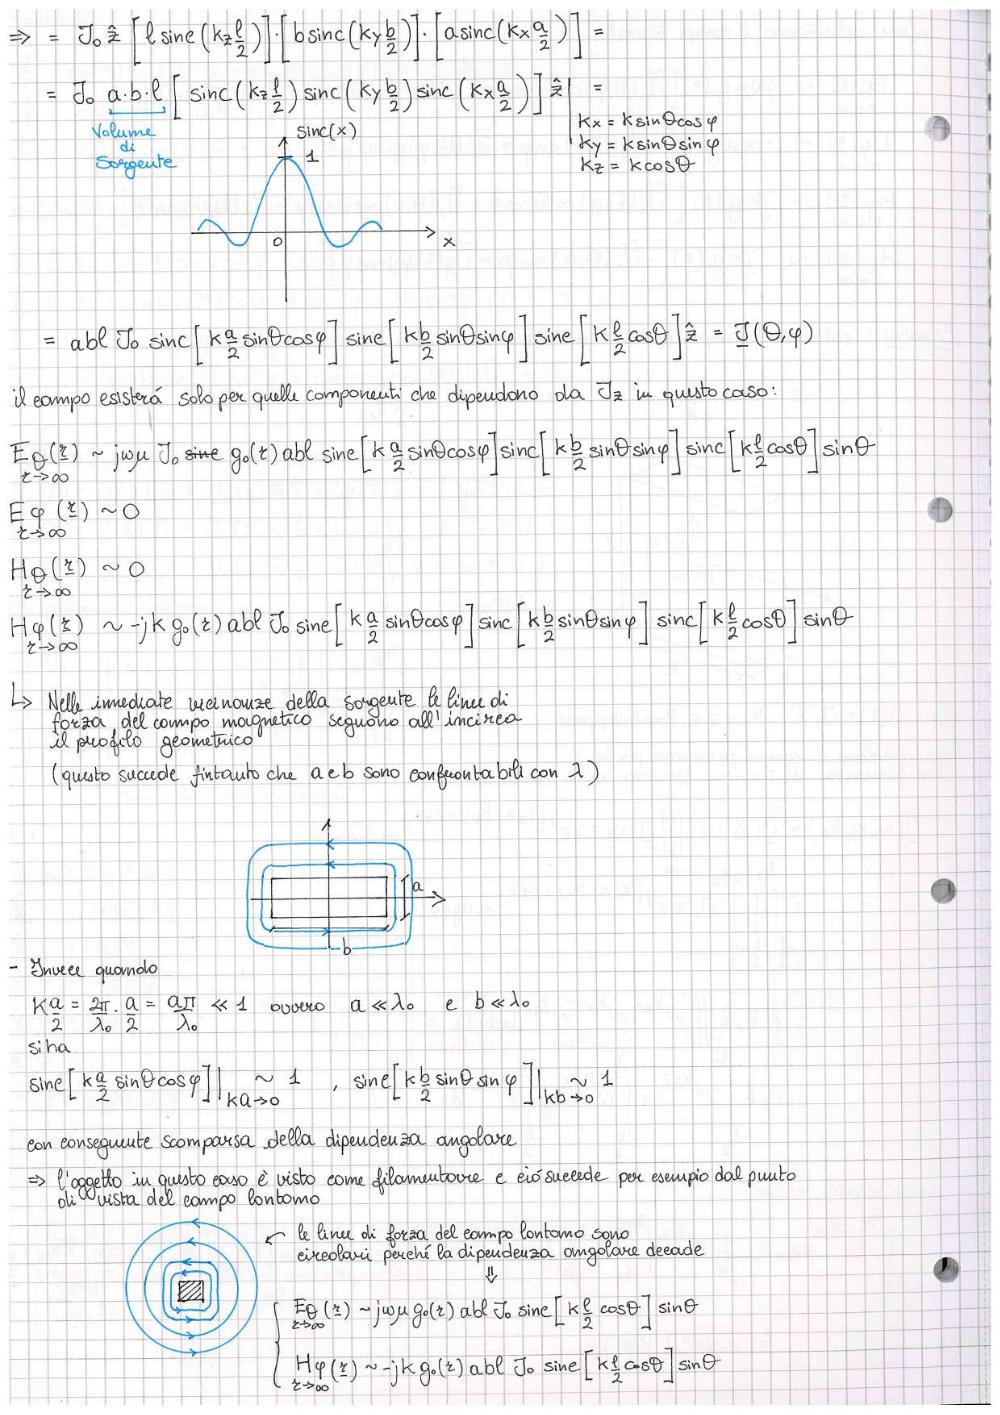 ⇒ = J₀ ẑ [l sinc(kz l/2)]·[b sinc(ky b/2)]·[a sinc(kx a/2)] =
= J₀ a·b·l [sinc(kz l/2) sinc(ky b/2) sinc(kx a/2)] ẑ | =
Volume
di
Sorgente
kx = k sinθ cosφ
ky = k sinθ sinφ
kz = k cosθ
sinc(x)
1
0
x
= abl J₀ sinc[k a/2 sinθcosφ] sinc[k b/2 sinθsinφ] sinc[k l/2 cosθ] ẑ = J(θ,φ)
il campo esisterá solo per quelle componenti che dipendono da Jz in questo caso:
Eθ(r) ~ jωμ J₀ g₀(r) abl sinc[k a/2 sinθcosφ] sinc[k b/2 sinθsinφ] sinc[k l/2 cosθ] sinθ
r→∞
Eφ(r) ~ 0
r→∞
Hθ(r) ~ 0
r→∞
Hφ(r) ~ -jk g₀(r) abl J₀ sinc[k a/2 sinθcosφ] sinc[k b/2 sinθsinφ] sinc[k l/2 cosθ] sinθ
r→∞
↳ Nelle immediate vicinanze della sorgente le linee di
forza del campo magnetico seguono all'incirca
il profilo geometrico
(questo succede fintanto che a e b sono confrontabili con λ)
a
b
- Invece quando
k a/2 = 2π/λ₀ · a/2 = aπ/λ₀ ≪ 1 ovvero a ≪ λ₀ e b ≪ λ₀
si ha
sinc[k a/2 sinθcosφ]|ka→0 ~ 1 , sinc[k b/2 sinθ sinφ]|kb→0 ~ 1
con conseguente scomparsa della dipendenza angolare
⇒ l'oggetto in questo caso è visto come filamentare e ció succede per esempio dal punto
di vista del campo lontano
← le linee di forza del campo lontano sono
circolari perché la dipendenza angolare decade
⇓
Eθ(r) ~ jωμ g₀(r) abl J₀ sinc[k l/2 cosθ] sinθ
r→∞
Hφ(r) ~ -jk g₀(r) abl J₀ sinc[k l/2 cosθ] sinθ
r→∞